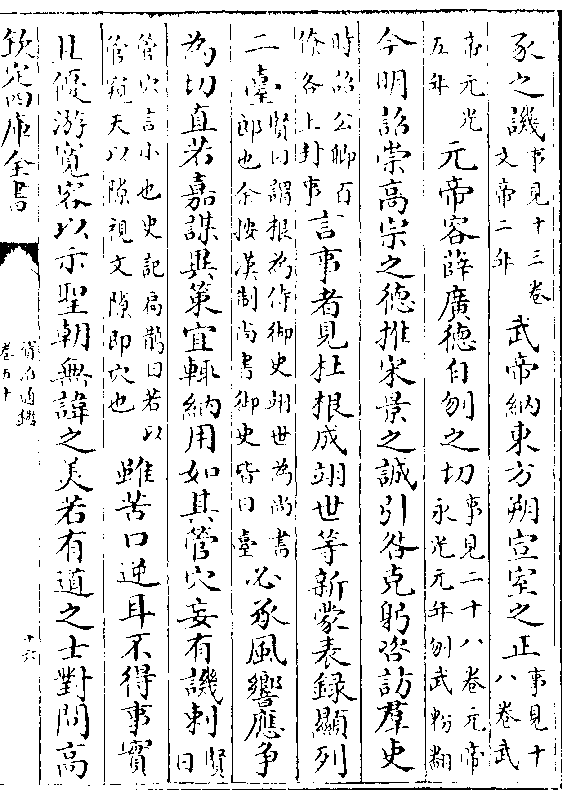 豕之譏事見十三卷文帝二年武帝納東方朔宣室之正事見十八卷武
帝元光五年元帝容薛廣德自刎之切事見二十八卷元帝永光元年刎武粉翻
今明詔崇髙宗之德推宋景之誠引咎克躬咨訪羣吏
時詔公卿百僚各上封事言事者見杜根成翊世等新蒙表録顯列
二臺賢曰謂根為侍御史翊世為尚書郎也余按漢制尚書御史皆曰臺必承風響應争
為切直若嘉謀異策宜輒納用如其管穴妄有譏刺賢曰
管穴言小也史記扁鵲曰若以管窺天以隙視文隙即穴也雖苦口逆耳不得事實
且優游寛容以示聖朝無諱之美若有道之士對問髙
欽定四庫全書
資治通鑑
卷五十
十六